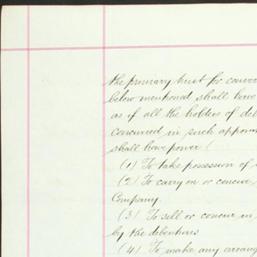 the primary trust for conver
below mentioned shall have
as if all the holders of deb
concurred in such appoin
shall have power!
(1) To take possession of
(2) To carry on or concur
Company.
(3) To sell or concur in
by the debentures
(4) To make any arrang